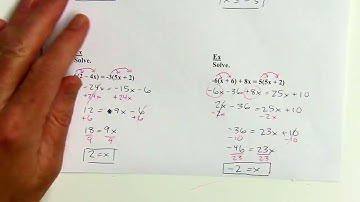 Ex
Solve.
- 4x) = -3(5x + 2)
-24x = -15x - 6
+24x +24x
12 = 9x - 6
+6 +6
18 = 9x
9 9
2 = x
Ex
Solve.
-6(x + 6) + 8x = 5(5x + 2)
-6x - 36 + 8x = 25x + 10
2x - 36 = 25x + 10
-2x -2x
-36 = 23x + 10
-10 -10
-46 = 23x
23 23
-2 = x